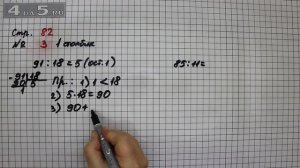 4oD5.ru
Стр. 82
№ 3 1 столбик
91 : 18 = 5 (ост. 1)
85 : 11 =
- 91 | 18
90 | 5
1
Пр.: 1) 1 < 18
2) 5 · 18 = 90
3) 90 +